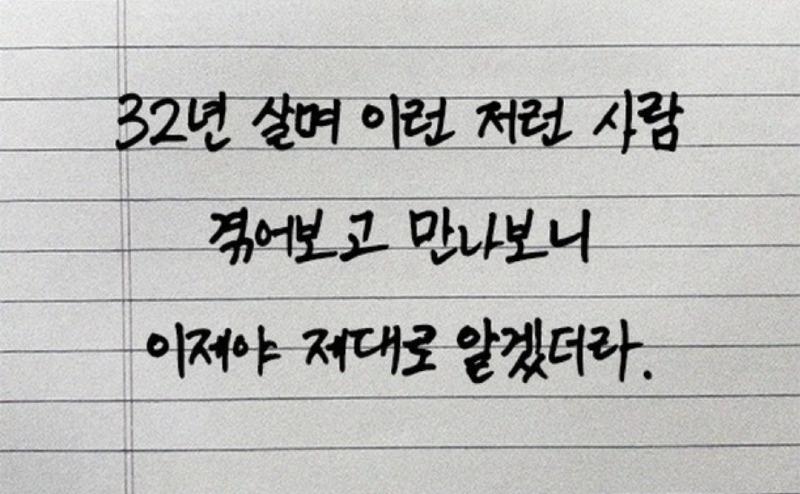 32년 살며 이런 저런 사람
겪어보고 만나보니
이제야 제대로 알겠더라.